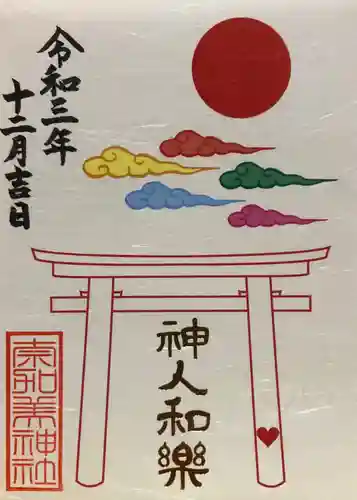 令和三年
十二月吉日
神人和樂
東加美神社